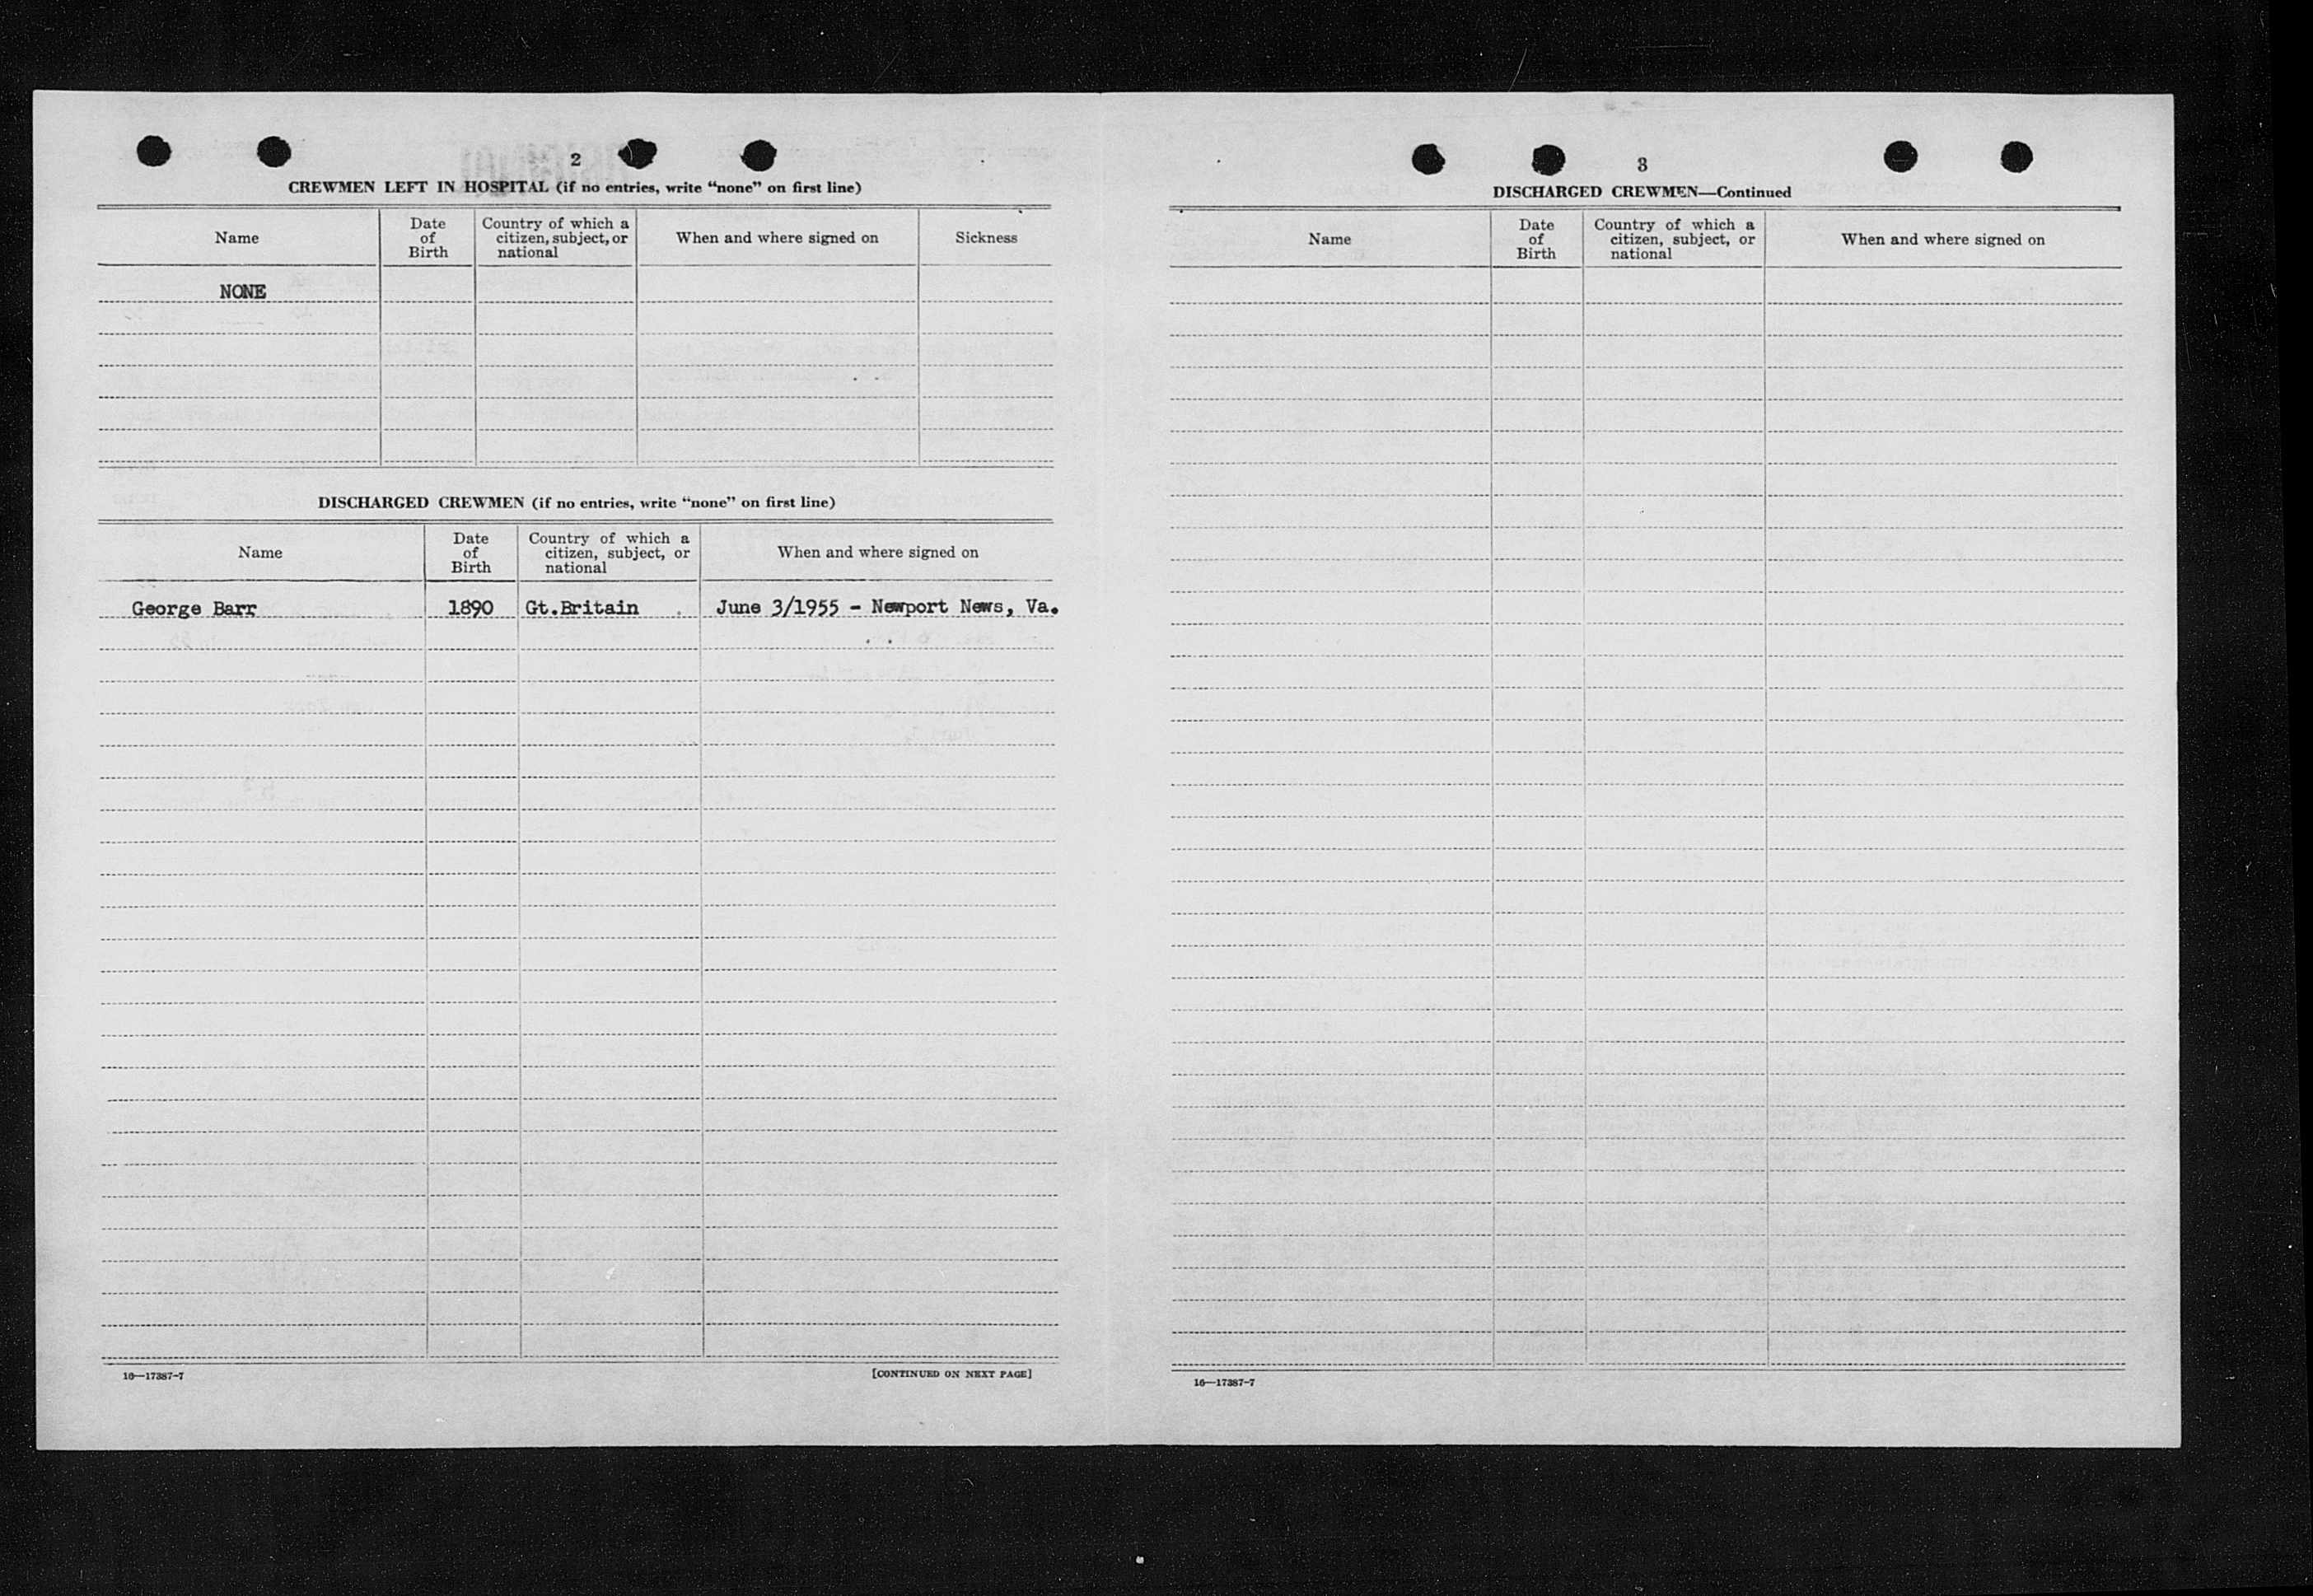 2
CREWMEN LEFT IN HOSPITAL (if no entries, write “none” on first line)
Name
Date of Birth
Country of which a citizen, subject, or national
When and where signed on
Sickness
NONE
DISCHARGED CREWMEN (if no entries, write “none” on first line)
Name
Date of Birth
Country of which a citizen, subject, or national
When and where signed on
George Barr 1890 Gt.Britain June 3/1955 - Newport News, Va.
16—17387-7 [CONTINUED ON NEXT PAGE]
3
DISCHARGED CREWMEN—Continued
Name
Date of Birth
Country of which a citizen, subject, or national
When and where signed on
16—17387-7